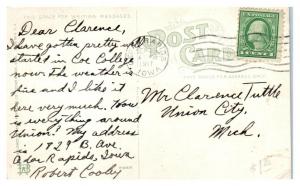 SPACE FOR WRITING MESSAGES
POST CARD
IOWA
Dear Clarence,
I have gotten pretty well
started in Coe College
now. the weather is
fine and I like it
here very much. How
is everything around
Union? My address
is 1829 B. Ave.
Cedar Rapids, Iowa
Robert Cooley
Mr Clarence Tuttle
Union City,
Mich.